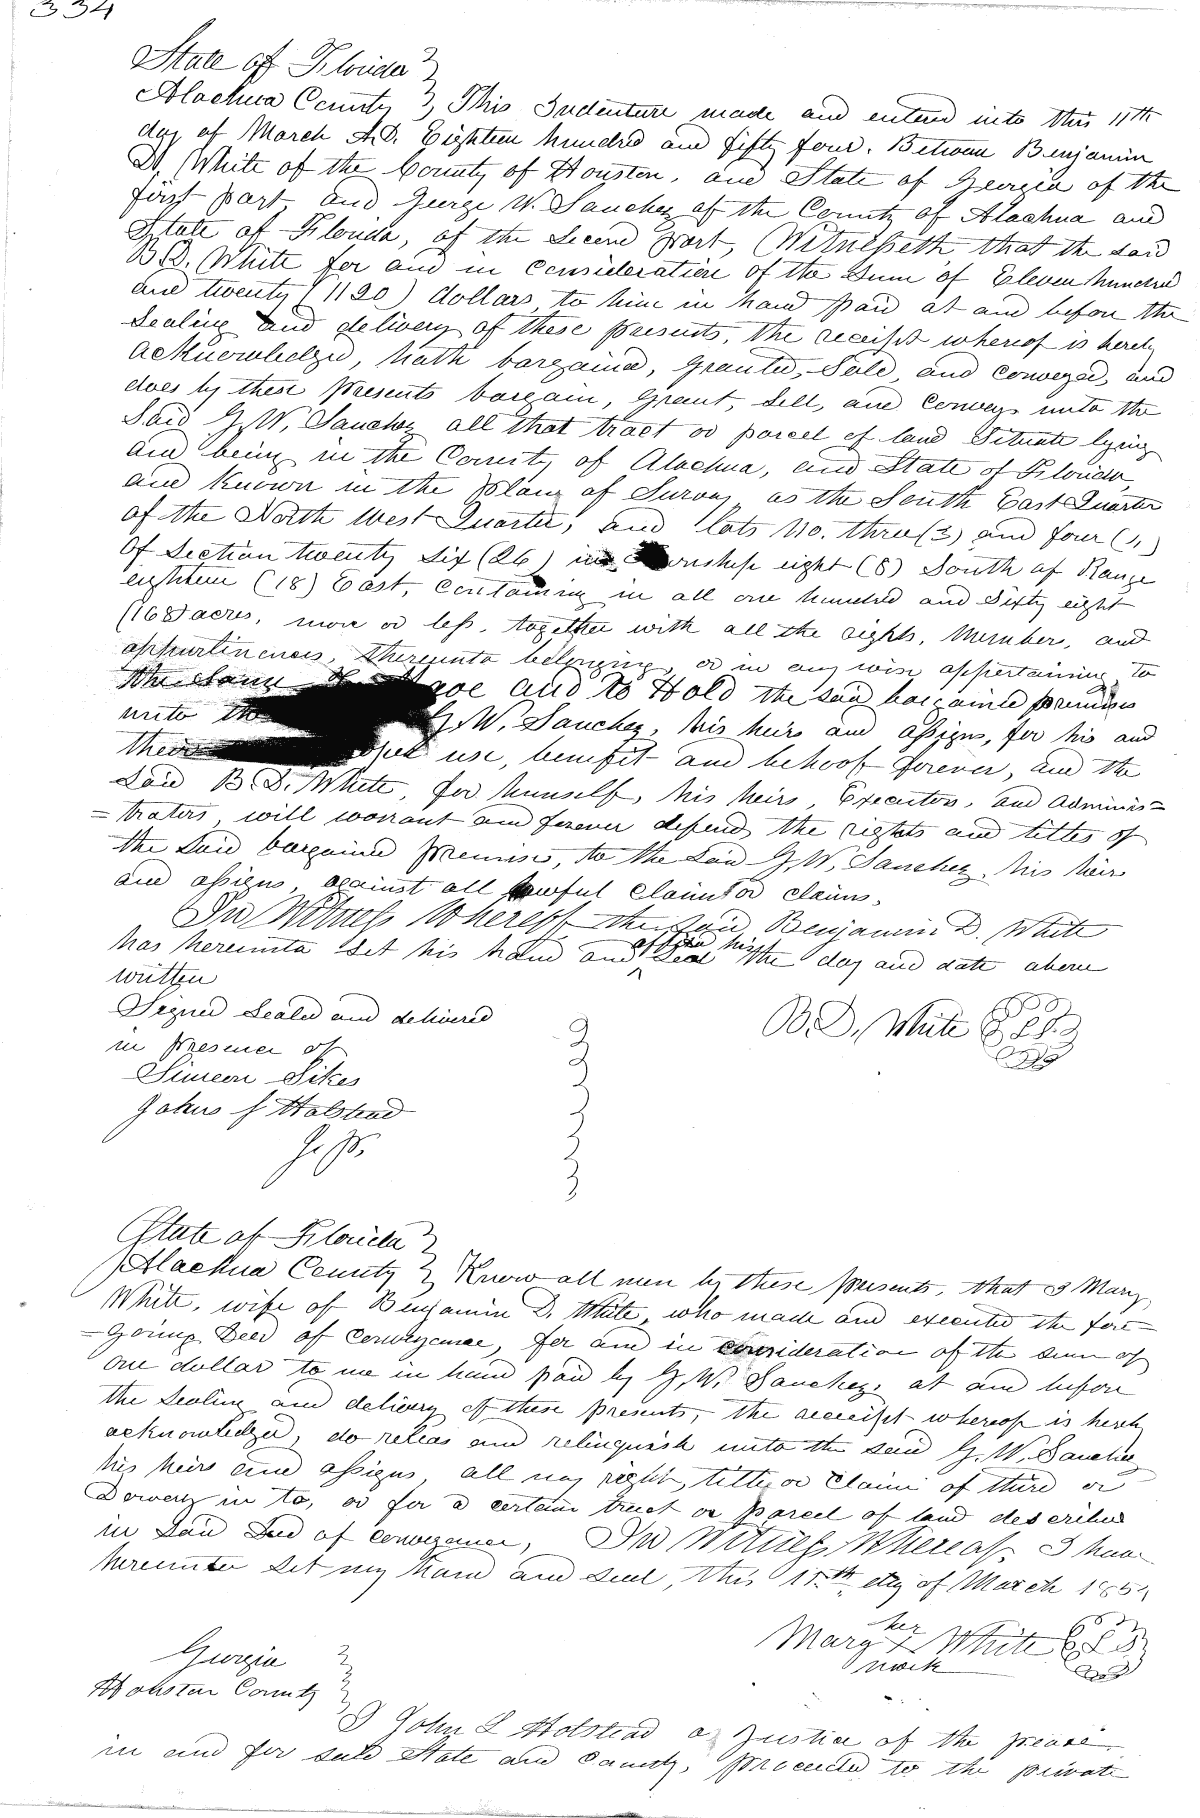 334
State of Florida }
Alachua County } This Indenture made and entered into this 11th
day of March A.D. Eighteen hundred and fifty four. Between Benjamin
D. White of the County of Houston, and State of Georgia of the
first part, and George W. Sanchez of the County of Alachua and
State of Florida, of the Second part, Witnesseth that the said
B.D. White for and in consideration of the Sum of Eleven hundred
and twenty (1120) dollars, to him in hand paid at and before the
Sealing and delivery of these presents, the receipt whereof is hereby
acknowledged, hath bargained, granted, Sold, and conveyed, and
does by these presents bargain, grant, Sell, and convey unto the
Said G.W. Sanchez all that tract or parcel of land Situate lying
and being in the County of Alachua, and State of Florida,
and known in the plan of Survey as the South East Quarter
of the North West Quarter, and lots No. three (3) and four (4)
Of Section twenty Six (26) in Township eight (8) South of Range
eighteen (18) East, containing in all one hundred and Sixty eight
(168) acres, more or less, together with all the rights, Member, and
appurtinences, thereunto belonging, or in any wise appertaining, to
the Same To Have and to Hold the said bargained premises
unto the G.W. Sanchez, his heirs and assigns, for his and
their use, benefit and behoof forever, and the
Said B.D. White, for himself, his heirs, Executors, and Adminis=
=trators, will warrant and forever defend the rights and titles of
the Said bargained premises, to the Said G.W. Sanchez, his heirs
and assigns, against all lawful claims or claims.
In Witness Whereof the said Benjamin D. White
has hereunto Set his hand and affixed his Seal the day and date above
written
Signed Sealed and delivered
in presence of
B.D. White L.S.
Simeon Sikes
John L Holstead
J.P.
State of Florida }
Alachua County } Know all men by these presents, that I Mary
White, wife of Benjamin D. White, who made and executed the fore=
=going Deed of conveyance, for and in consideration of the sum of
one dollar to me in hand paid by G.W. Sanchez, at and before
the Sealing and delivery of these presents, the receipt whereof is hereby
acknowledged, do releas and relinquish unto the said G.W. Sanchez
his heirs and assigns, all my right, title or Claim of third or
Dower in to, or for a certain tract or parcel of land described
in Said Deed of conveyance, In Witness Whereof, I have
hereunto Set my hand and seal, this 11th day of March 1854
her
Mary X White L.S.
mark
Georgia }
Houston County }
I John L Holstead a Justice of the peace
in and for said State and County, proceeded to the private